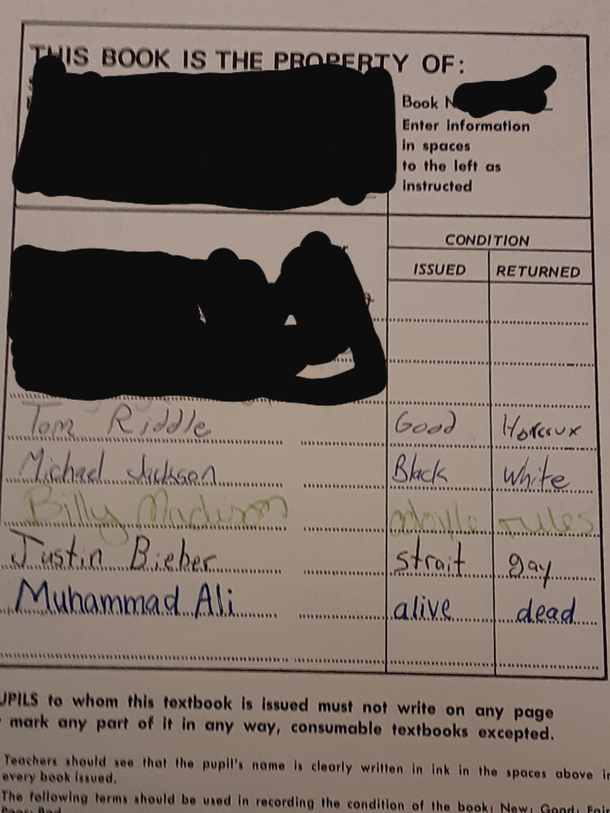 THIS BOOK IS THE PROPERTY OF:
Book
Enter information
in spaces
to the left as
instructed
CONDITION
ISSUED RETURNED
Tom Riddle Good Horcrux
Michael Jackson Black White
Billy Madison odoyle rules
Justin Bieber strait gay
Muhammad Ali alive dead
UPILS to whom this textbook is issued must not write on any page
mark any part of it in any way, consumable textbooks excepted.
Teachers should see that the pupil's name is clearly written in ink in the spaces above in
every book issued.
The following terms should be used in recording the condition of the book: New; Good; Fair